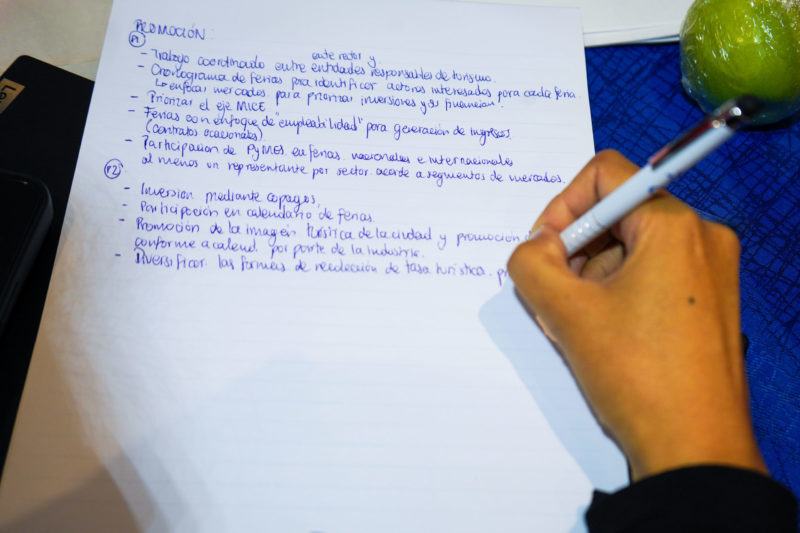 PROMOCIÓN:
P1
ente rector y
- Trabajo coordinado entre entidades responsables de turismo.
- Cronograma de ferias para identificar actores interesados para cada feria.
↳ enfocar mercados para priorizar inversiones y su financiam.
- Priorizar el eje MICE
- Ferias con enfoque de "empleabilidad" para generación de ingresos.
(contratos ocasionales)
- Participación de PyMES en ferias nacionales e internacionales
al menos un representante por sector acorde a segmentos de mercados.
P2
- Inversión mediante copagos.
- Participación en calendario de ferias.
- Promoción de la imagen turística de la ciudad y promoción
conforme a calend. por parte de la industria.
- Diversificar las formas de recolección de tasa turística.